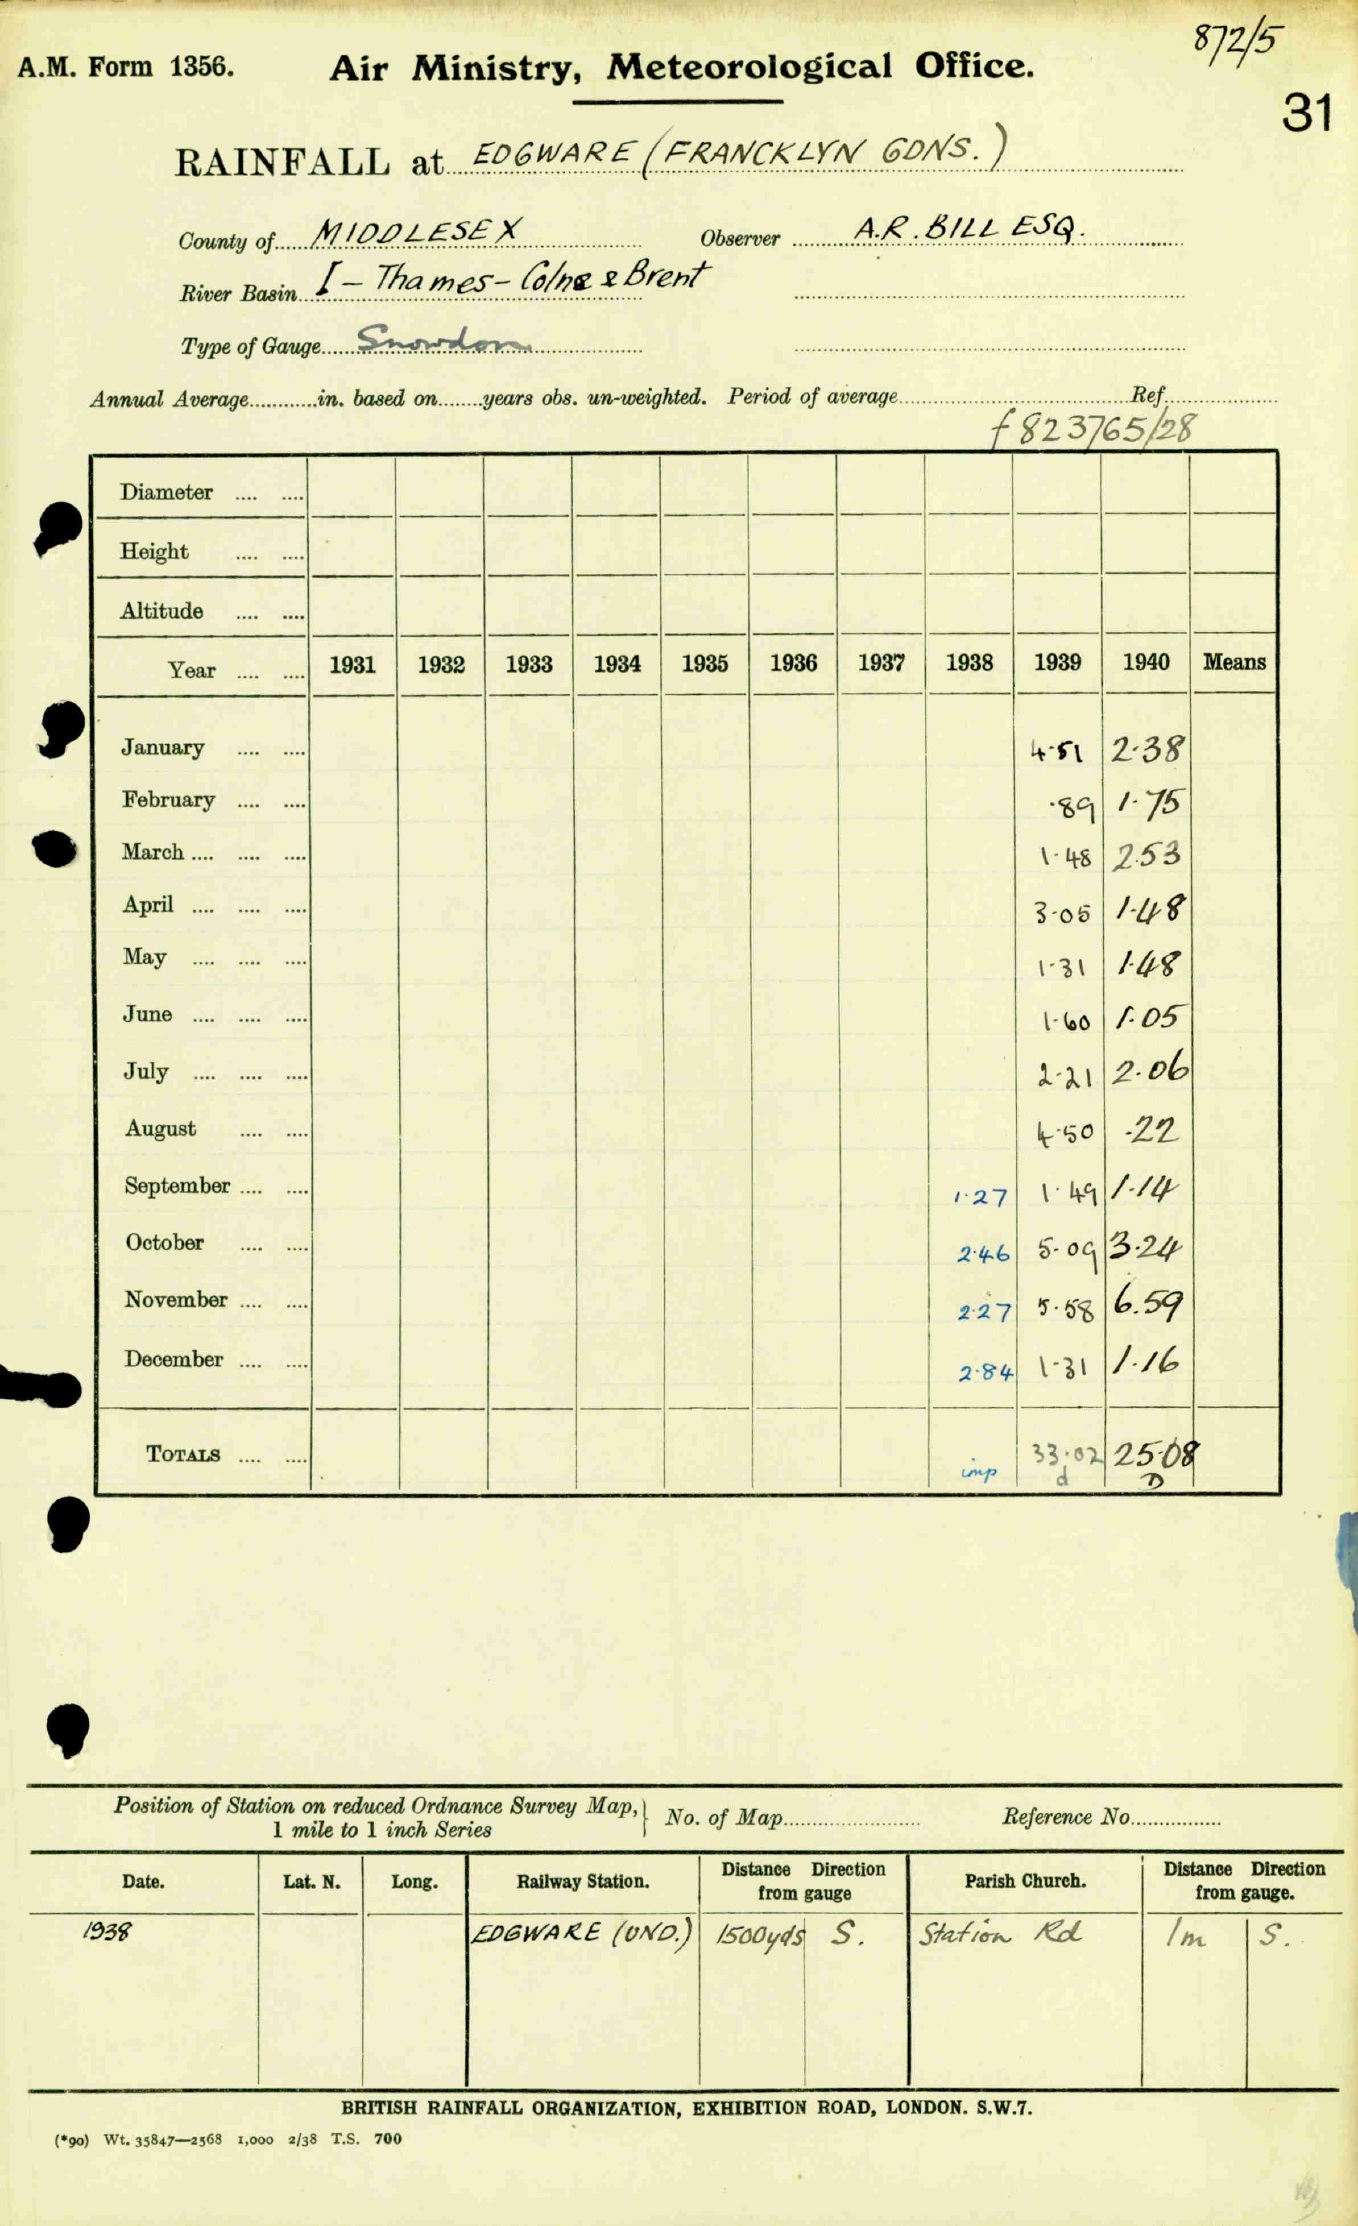 872/5
A.M. Form 1356. Air Ministry, Meteorological Office.
31
RAINFALL at EDGWARE (FRANCKLYN GDNS.)
County of MIDDLESEX Observer A.R. BILL ESQ.
River Basin I – Thames – Colne & Brent
Type of Gauge Snowdon
Annual Average............in. based on........years obs. un-weighted. Period of average................Ref................
f 823765/28
Diameter .... ....
Height .... ....
Altitude .... ....
Year .... .... 1931 1932 1933 1934 1935 1936 1937 1938 1939 1940 Means
January .... .... 4.51 2.38
February .... .... .89 1.75
March .... .... .... 1.48 2.53
April .... .... .... 3.05 1.48
May .... .... .... 1.31 1.48
June .... .... .... 1.60 1.05
July .... .... .... 2.21 2.06
August .... .... 4.50 .22
September .... .... 1.27 1.49 1.14
October .... .... 2.46 5.09 3.24
November .... .... 2.27 5.58 6.59
December .... .... 2.84 1.31 1.16
TOTALS .... .... imp 33.02 25.08
d D
Position of Station on reduced Ordnance Survey Map, No. of Map........................ Reference No................
1 mile to 1 inch Series
Date. Lat. N. Long. Railway Station. Distance Direction from gauge Parish Church. Distance Direction from gauge.
1938 EDGWARE (UND.) 1500yds S. Station Rd 1m S.
BRITISH RAINFALL ORGANIZATION, EXHIBITION ROAD, LONDON. S.W.7.
(*90) Wt. 35847—2568 1,000 2/38 T.S. 700